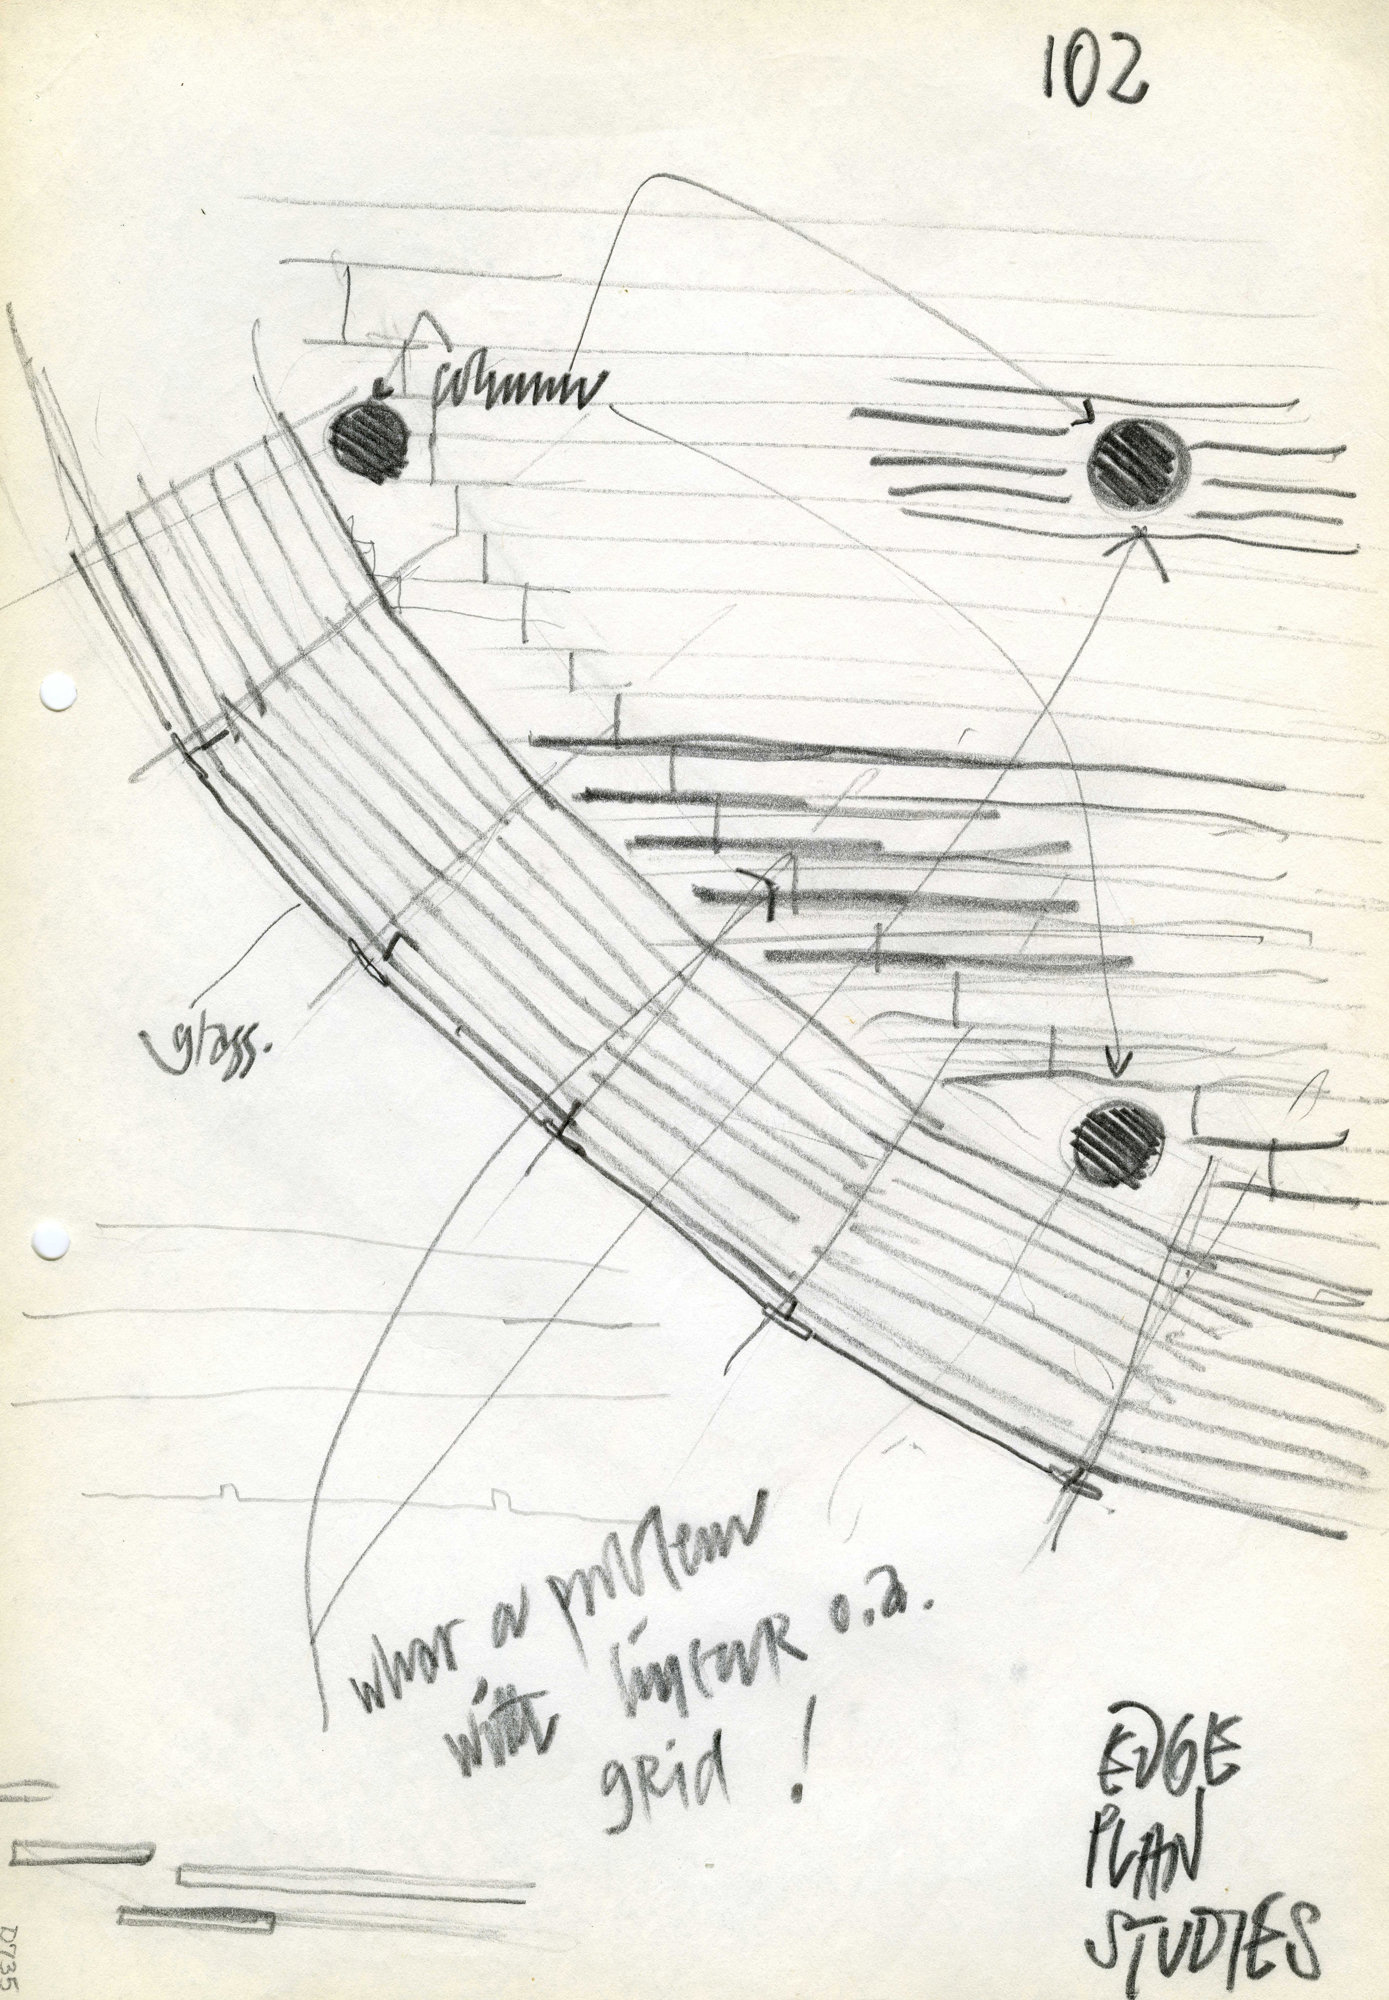 102
column
glass.
what a problem
with o.a.
grid !
EDGE
PLAN
STUDIES
D735